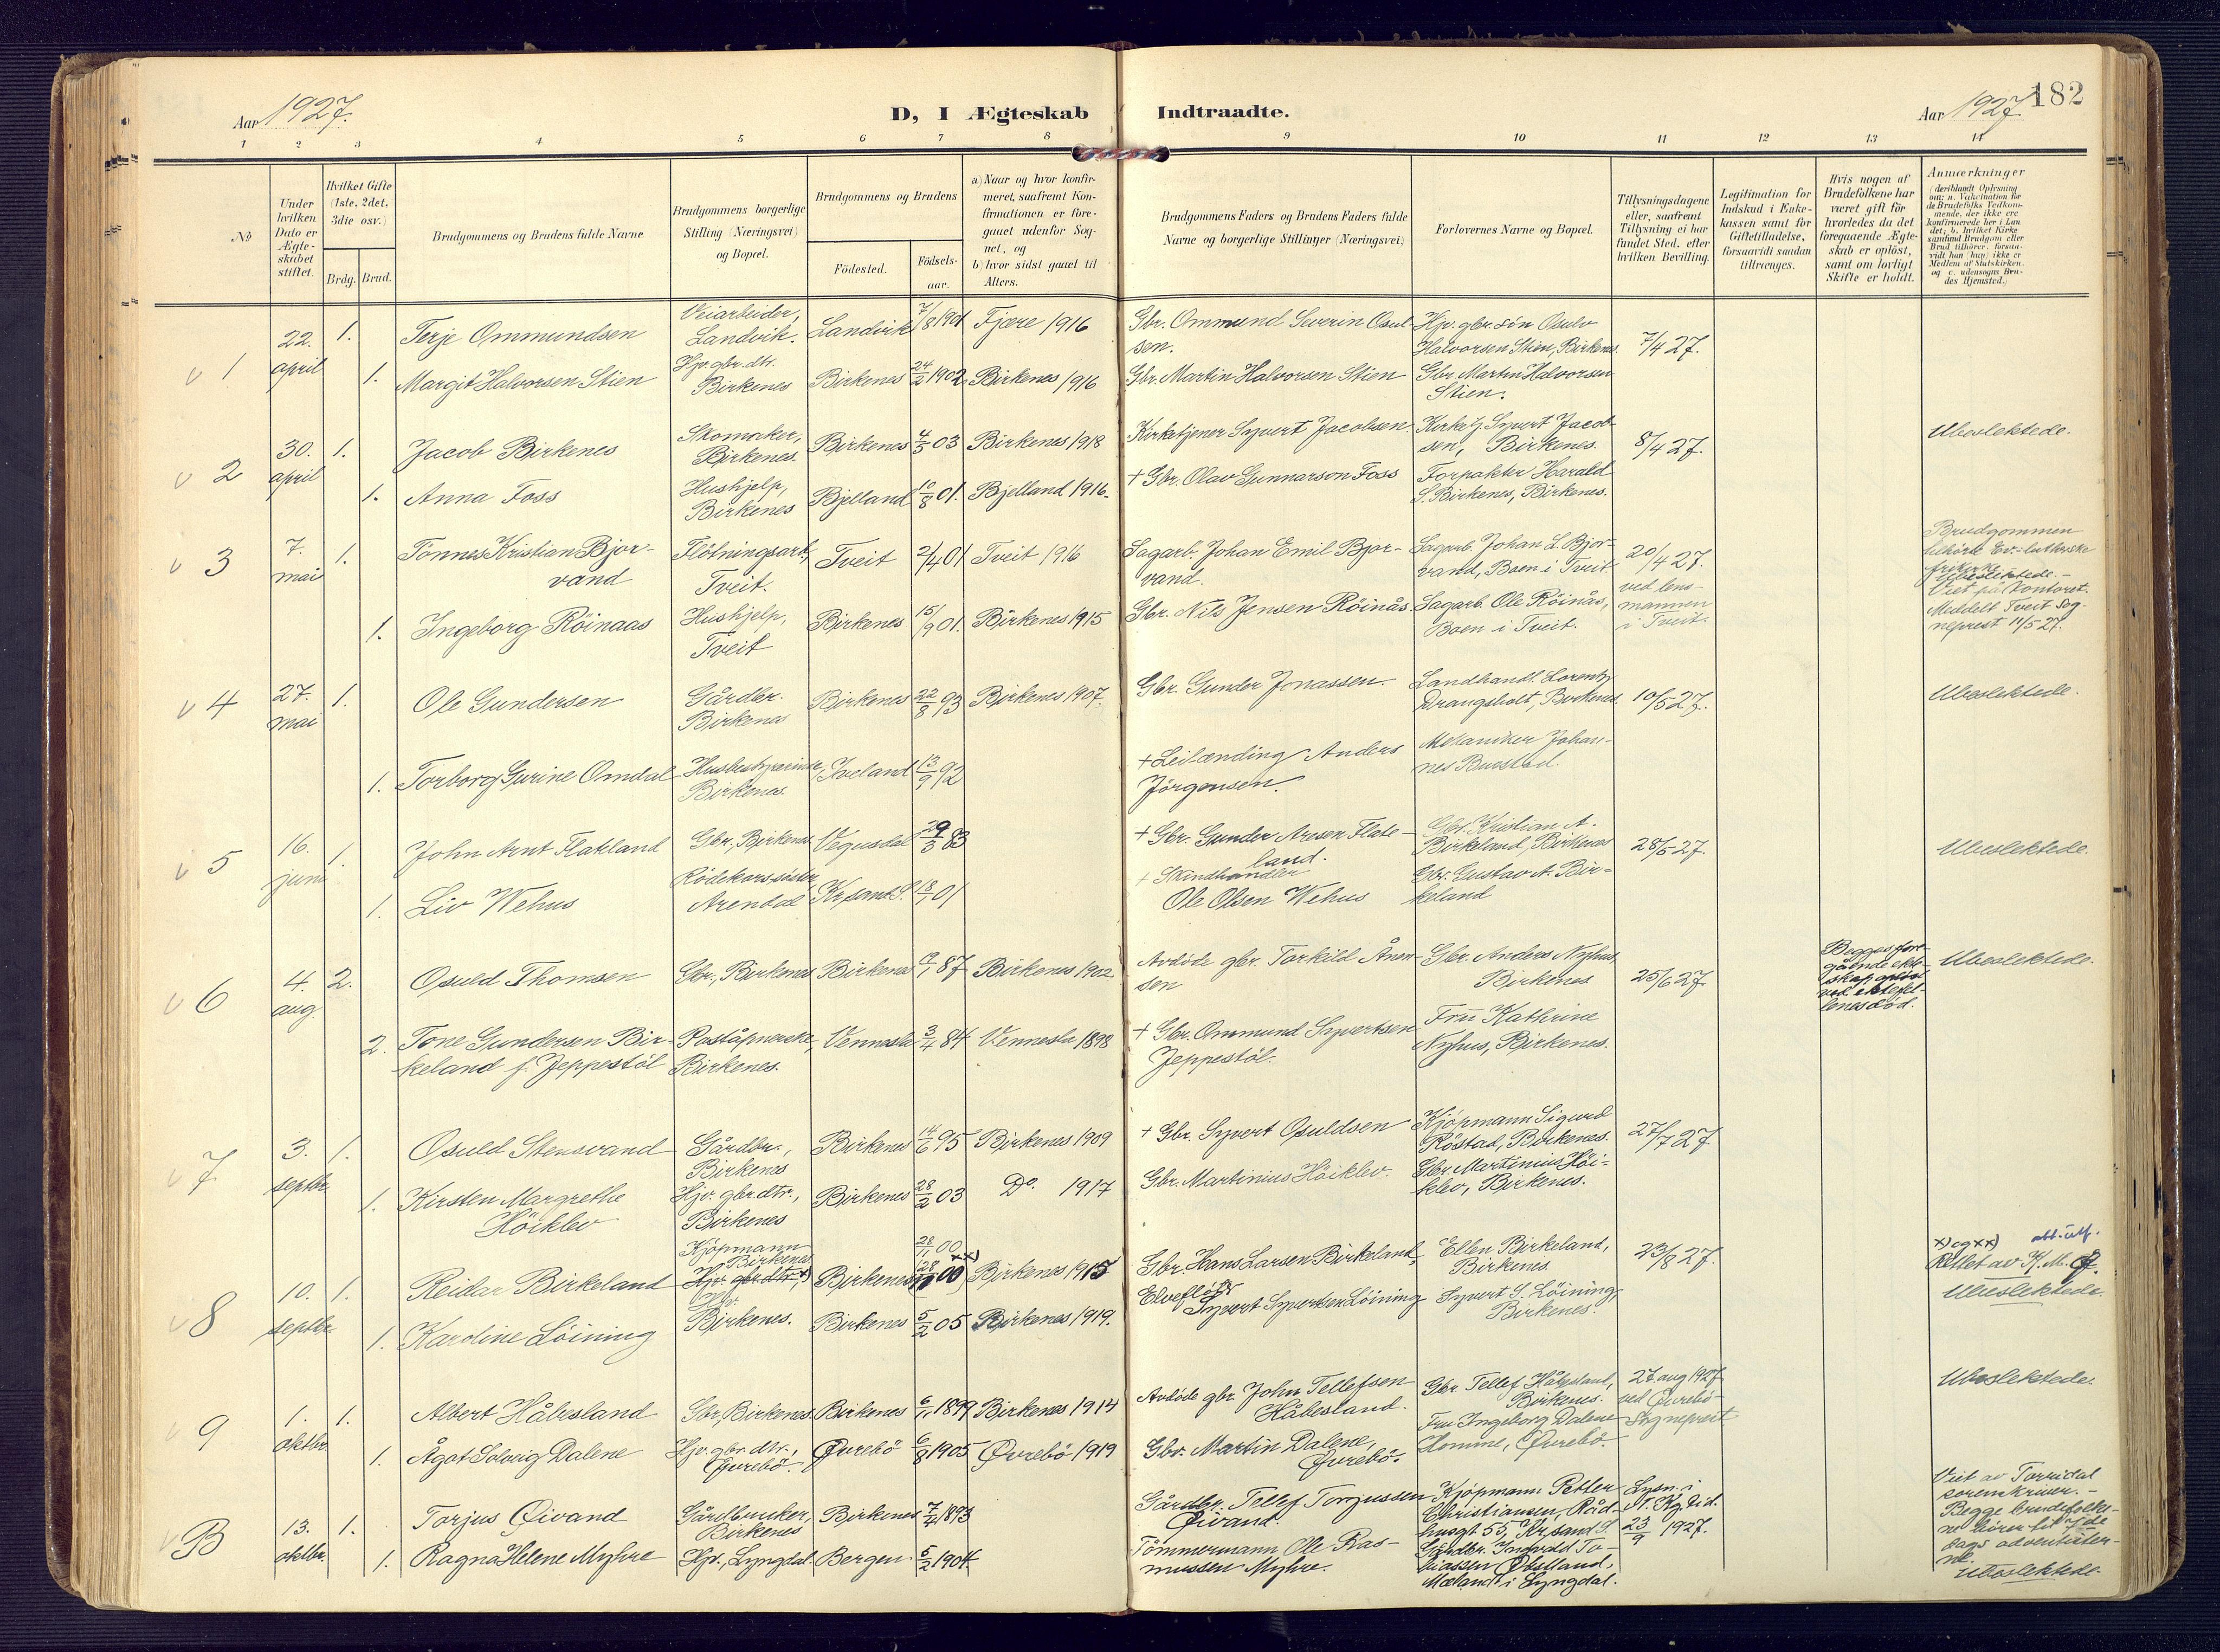 Aar 1927.
D, I Ægteskab Indtraadte.
Aar 1927.
182
1 2 3 4 5 6 7 8 9 10 11 12 13 14
№
Under hvilken Dato er Ægteskabet stiftet.
Hvilket Gifte (1ste, 2det, 3die osv.)
Brdg. Brud.
Brudgommens og Brudens fulde Navne
Brudgommens borgerlige Stilling (Næringsvei) og Bopæl.
Brudgommens og Brudens
Födested.
Födsels-aar.
a) Naar og hvor konfirmeret, saafremt Konfirmationen er foregaaet udenfor Sognet, og
b) hvor sidst gaaet til Alters.
Brudgommens Faders og Brudens Faders fulde Navne og borgerlige Stillinger (Næringsvei)
Forlovernes Navne og Bopæl.
Tillysningsdagene eller, saafremt Tillysning ei har fundet Sted, efter hvilken Bevilling.
Legitimation for Indskud i Enkekassen samt for Giftetilladelse, forsaavidt saadan tiltrænges.
Hvis nogen af Brudefolkene har været gift för hvorledes da det foregaaende Ægteskab er oplöst, samt om lovligt Skifte er holdt.
Anmærkninger
1 22. april 1. Terje Ommundsen Veiarbeider, Landvik. Landvik 7/8 1901 Fjære 1916 Gbr. Ommund Severin Osulsen. Hjv. gbr. sön Osulv Halvorsen Stien, Birkenes. 7/4 27.
1. Margit Halvorsen Stien Hjv. gbr. dtr. Birkenes Birkenes 24/2 1902 Birkenes 1916 Gbr. Martin Halvorsen Stien Gbr. Martin Halvorsen Stien.
2 30. april 1. Jacob Birkenes Skomaker, Birkenes. Birkenes 4/3 03 Birkenes 1918 Kirketjener Syvert Jacobsen. Kirketj. Syvert Jacobsen, Birkenes. 8/4 27. Ubeslektede.
1. Anna Foss Hushjelp, Birkenes Bjelland 10/8 01. Bjelland 1916. + Gbr. Olav Gunnarson Foss Forpakter Harald S. Birkenes, Birkenes.
3 7. mai 1. Tönnes Kristian Bjorvand Flötningsarb., Tveit. Tveit 2/4 01 Tveit 1916 Sagarb. Johan Emil Bjorvand. Sagarb. Johan E. Bjorvand, Boen i Tveit. 20/4 27. ved lensmannen i Tveit. Brudgommen tilhörte Ev.-lutherske frikirke. Ubeslektede. – Viet på kontoret. Meddelt Tveit sogneprest 11/5 27.
1. Ingeborg Röinaas Hushjelp, Tveit Birkenes 15/9 01. Birkenes 1915 Gbr. Nils Jensen Röinås. Sagarb. Ole Röinås, Boen i Tveit.
4 27. mai 1. Ole Gundersen Gårdbr. Birkenes Birkenes 22/8 93 Birkenes 1907. Gbr. Gunder Jonassen. Landhandl. Lorentz Drangsholt, Birkenes. 10/5 27. Ubeslektede.
1. Torborg Gurine Omdal Husbestyrerinde, Birkenes. Iveland 13/9 92 + Leilænding Anders Jörgensen. Mekaniker Johannes
5 16. juni 1. John Arnt Flakland Gbr., Birkenes Vegusdal 29/3 83 + Gbr. Gunder Aresen Flakeland. Gbr. Kristian A. Birkeland, Birkenes 28/5 27. Ubeslektede.
1. Liv Wehus Rödekorssöster, Arendal Kr.sand S. 18/1 01 + Skindhandler Ole Olsen Wehus Gbr. Gustav A. Birkeland
6 4. aug. 2. Osuld Thomsen Gbr., Birkenes Birkenes 87 Birkenes 1902 Avdöde gbr. Torkild Ånonsen Gbr. Anders Nyhus, Birkenes 25/6 27. Begges foregående ekteskap oplöst ved ektefellenes död. Ubeslektede.
2. Tone Gundersen Birkeland f. Jeppestöl Poståpnerske, Birkenes. Vennesla 3/4 84 Vennesla 1898 + Gbr. Ommund Syvertsen Jeppestöl. Fru Kathrine Nyhus, Birkenes.
7. 3. septbr. 1. Osuld Stensvand Gårdbr., Birkenes Birkenes 14/6 95 Birkenes 1909 + Gbr. Syvert Osuldsen Kjöpmann Sigurd Röstad, Birkenes. 27/7 27.
1. Kirsten Margrethe Höiklev Hjv. gbr. dtr., Birkenes Birkenes 28/2 03 Do. 1917 Gbr. Martinius Höiklev. Gbr. Martinius Höiklev, Birkenes.
8 10. septbr. 1. Reidar Birkeland Kjöpmann Birkenes Hjv. gbr. dtr. x) Birkenes 28/11 00 xx) Birkenes 1915 Gbr. Hans Larsen Birkeland, Ellen Birkeland, Birkenes. 23/8 27. x) og xx) Rettet av K. M. Ubeslektede. att. utf.
1. Karoline Löining Birkenes. Birkenes 5/2 05 Birkenes 1919. Elvefl. Syvert Syvertsen Löining Syvert S. Löining, Birkenes.
9 1. oktbr. 1. Albert Håbesland Gbr., Birkenes Birkenes 6/11 1899 Birkenes 1914 Avdöde gbr. John Tellefsen Håbesland. Gbr. Tellef Håbesland, Birkenes. 27 aug 1927 ved Øvrebö Sogneprest Ubeslektede.
1. Ågot Solveig Dalene Hjv. gbr. dtr., Øvrebö. Øvrebö 6/8 1905 Øvrebö 1919 Gbr. Martin Dalene, Øvrebö. Fru Ingeborg Dalene Homme, Øvrebö.
B 13. oktbr. 1. Torjus Øivand Gårdbruker, Birkenes Birkenes 7/4 1893 Gårdbr. Tellef Torjussen Øivand. Kjöpmann Petter Christiansen, Rådhusgt. 55, Kr.sand S. Lysn. i N. Kg. tid. 23/9 1927. Viet av Torridal sorenskriver. – Begge brudefolkene hörer til 7de dags adventisterne. Ubeslektede.
1. Ragna Helene Myhre Hjv., Lyngdal. Bergen. 5/2 1904 Tömmermann Ole Rasmussen Myhre. Gårdbr. Ingvald Tobiassen Øvelland, Møland i Lyngdal.